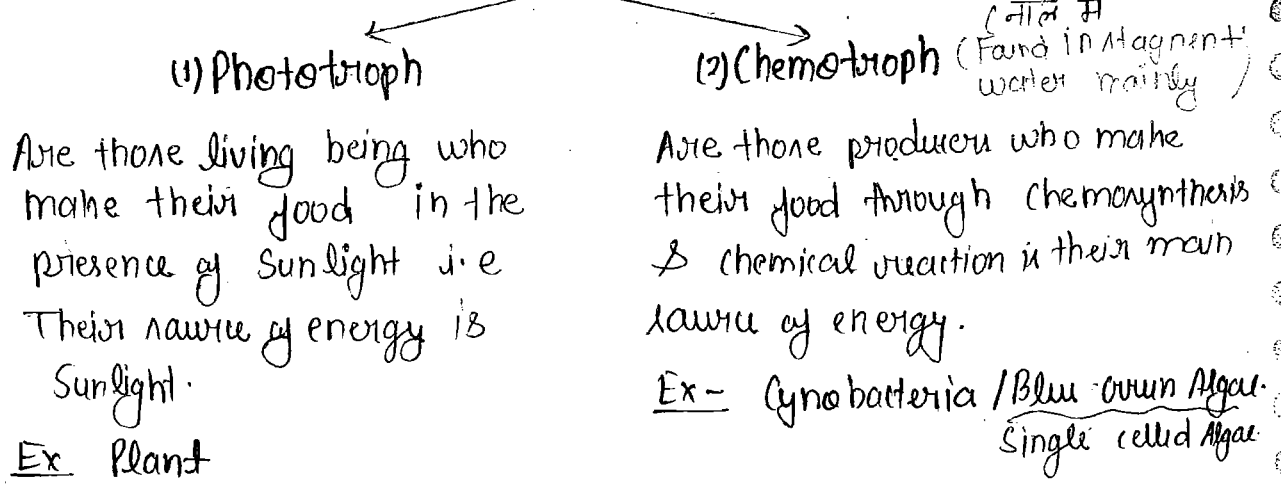 (1) Phototroph
Are those living being who
make their food in the
presence of Sunlight i.e
Their source of energy is
Sunlight.
Ex Plant
(2) Chemotroph (Found in stagnent
water mainly)
Are those producers who make
their food through Chemosynthesis
& chemical reaction is their main
source of energy.
Ex- Cynobacteria / Blue Green Algae.
Single celled Algae.